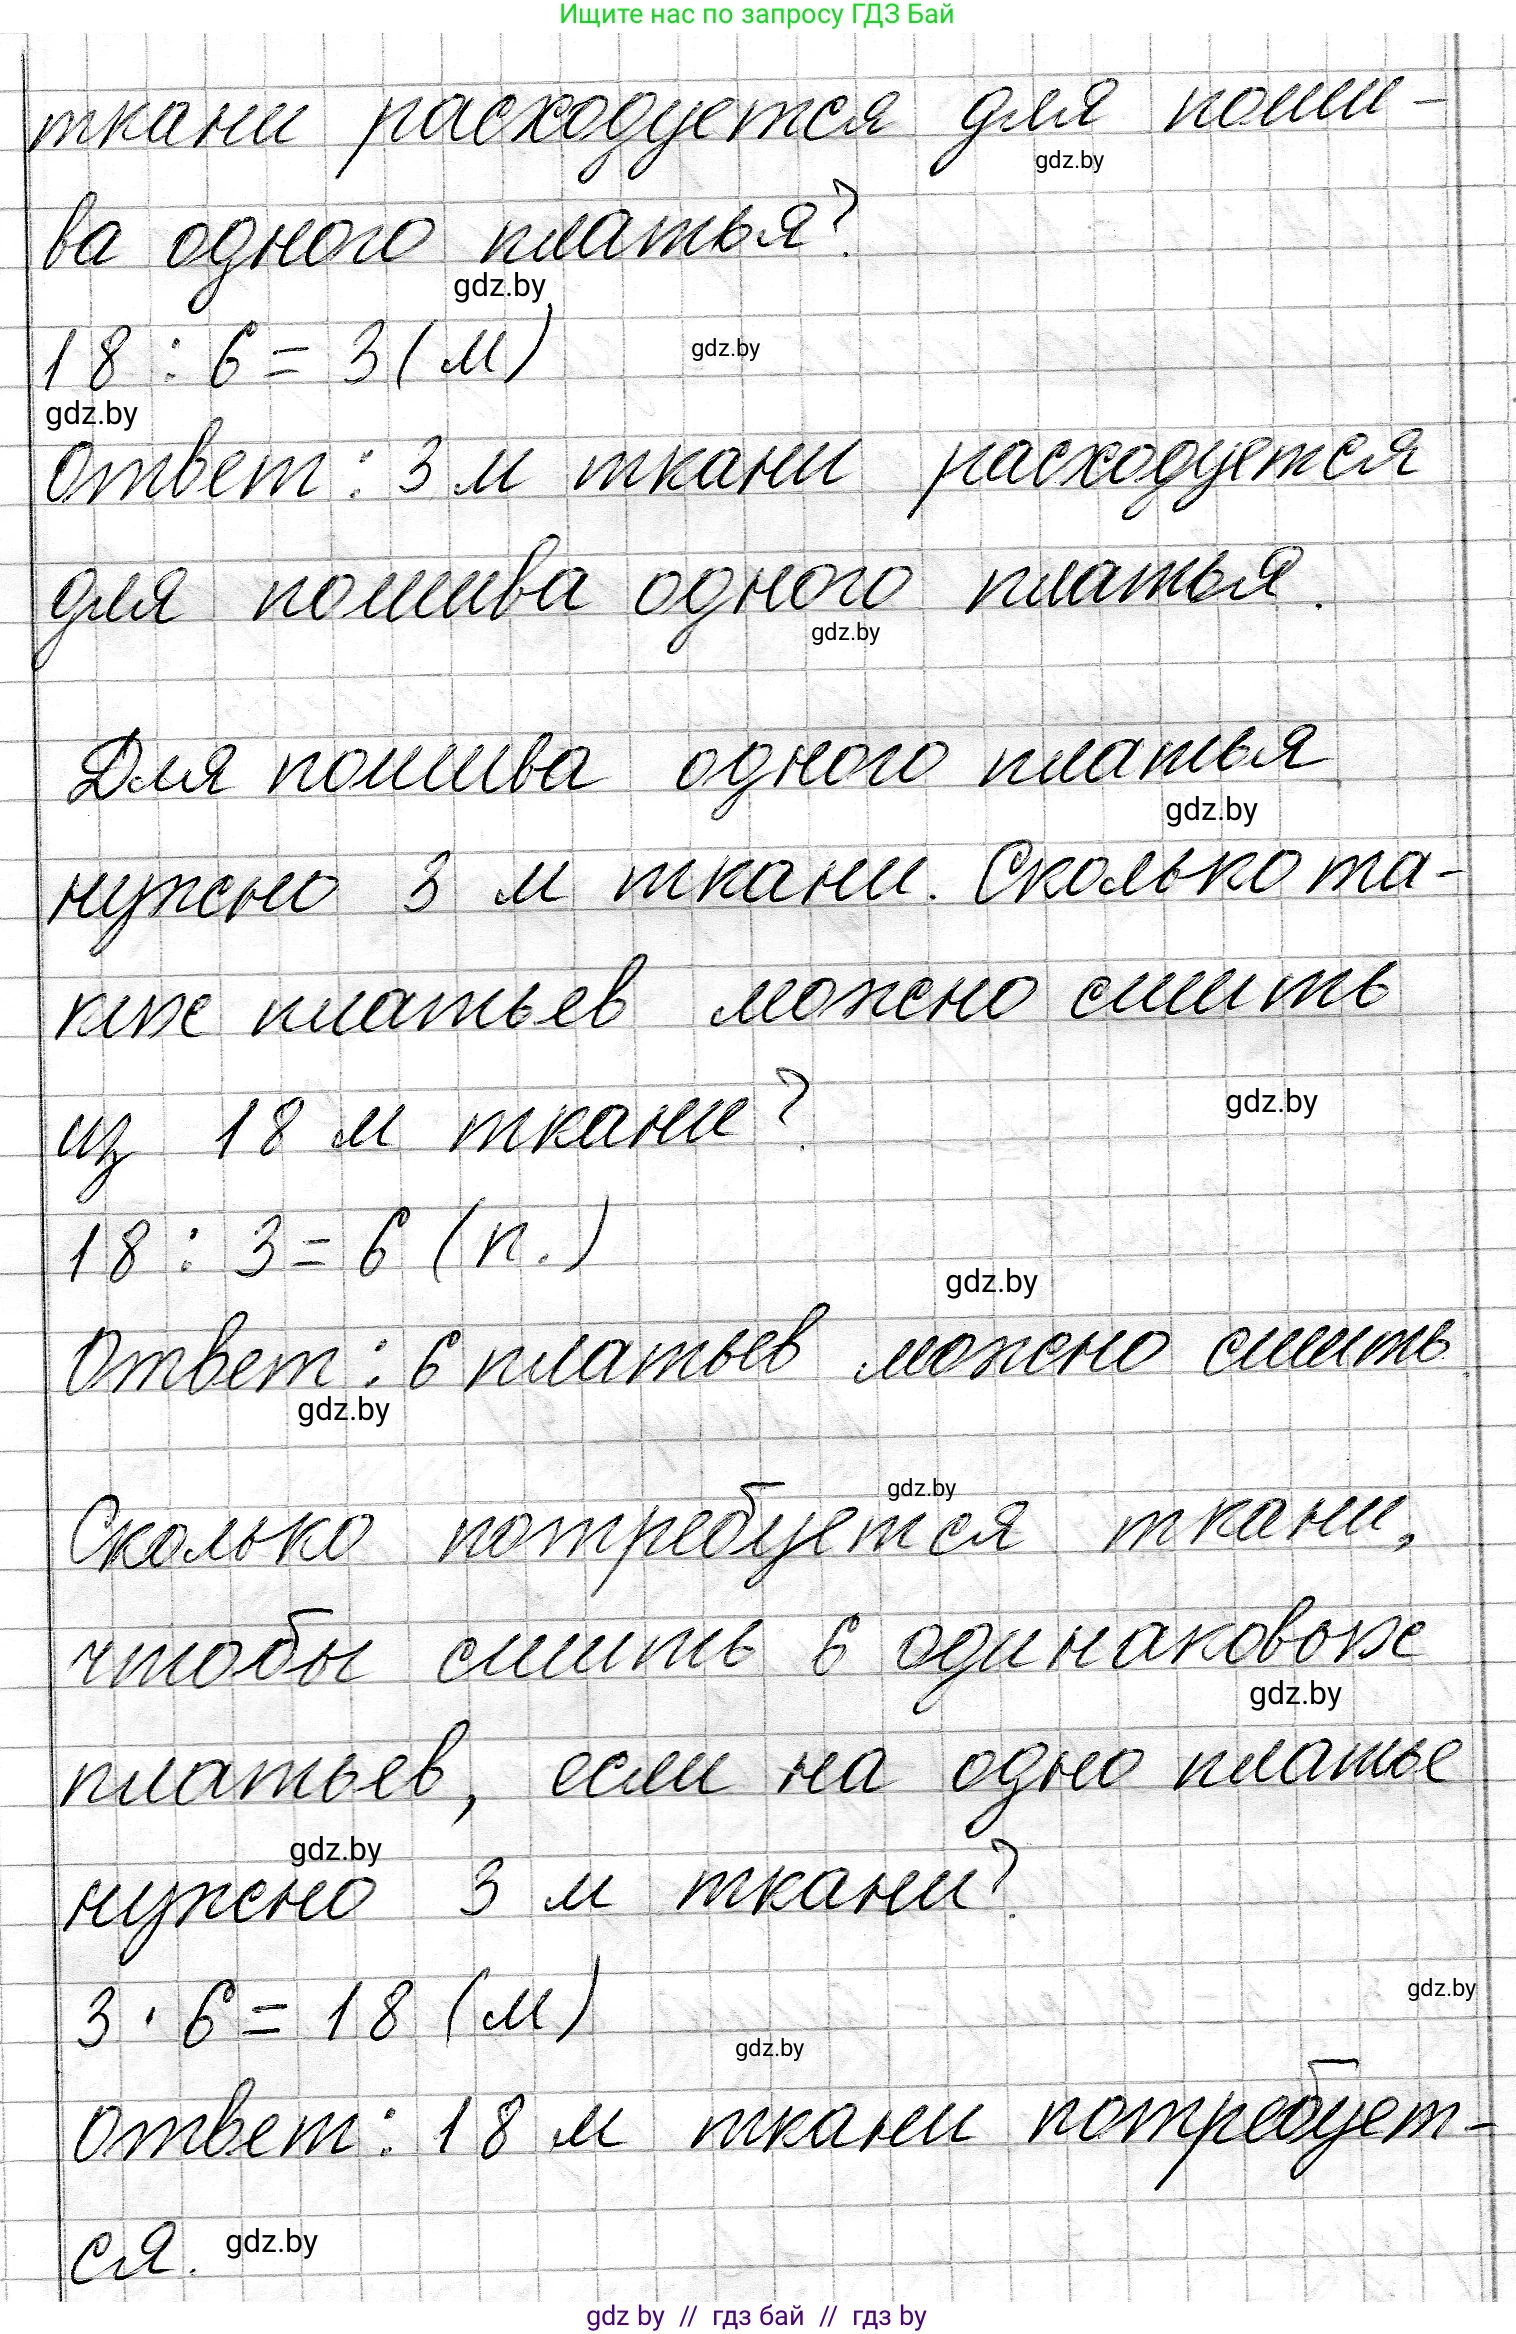 Ищите нас по запросу ГДЗ Бай
ткани расходуется для поши-
gdz.by
ва одного платья?
gdz.by
18 : 6 = 3 (м)
gdz.by
gdz.by
Ответ: 3 м ткани расходуется
для пошива одного платья.
gdz.by
Для пошива одного платья
gdz.by
нужно 3 м ткани. Сколько та-
ких платьев можно сшить
из 18 м ткани?
gdz.by
18 : 3 = 6 (п.)
gdz.by
Ответ: 6 платьев можно сшить.
gdz.by
gdz.by
Сколько потребуется ткани,
чтобы сшить 6 одинаковых
gdz.by
платьев, если на одно платье
gdz.by
нужно 3 м ткани?
3 · 6 = 18 (м)
gdz.by
gdz.by
Ответ: 18 м ткани потребует-
ся.
gdz.by
gdz by // гдз бай // гдз by